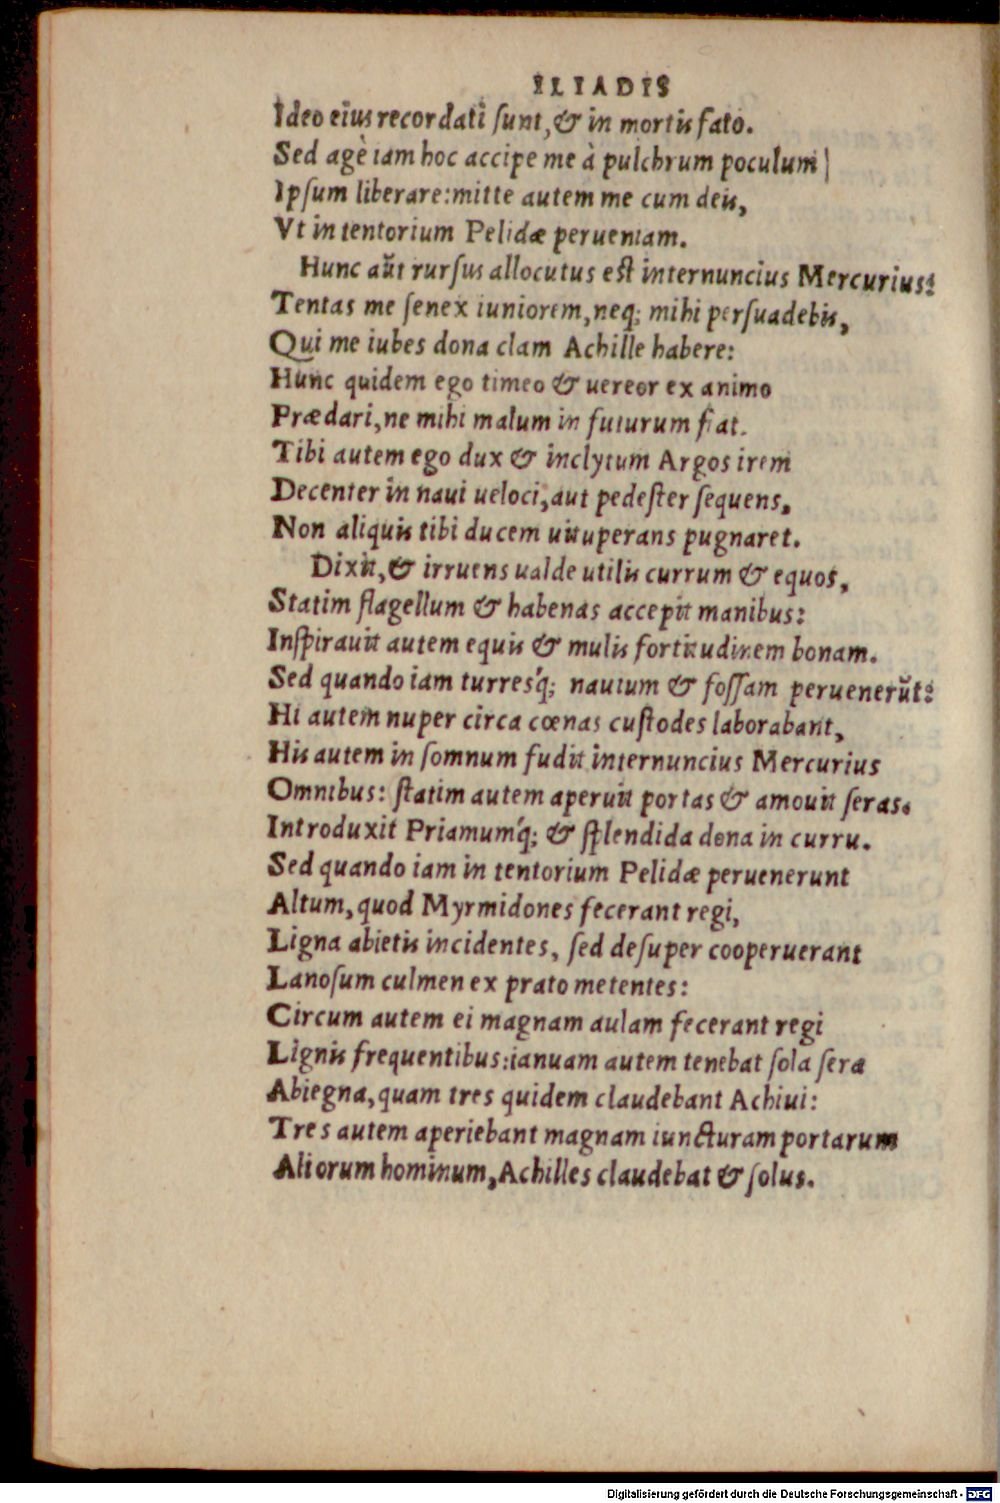 ILIADIS
Ideo eius recordati sunt, & in mortis fato.
Sed agè iam hoc accipe me à pulchrum poculum
Ipsum liberare: mitte autem me cum deis,
Vt in tentorium Pelidæ perueniam.
Hunc aũt rursus allocutus est internuncius Mercurius:
Tentas me senex iuniorem, neq; mihi persuadebis,
Qui me iubes dona clam Achille habere:
Hunc quidem ego timeo & uereor ex animo
Prædari, ne mihi malum in futurum fiat.
Tibi autem ego dux & inclytum Argos irem
Decenter in naui ueloci, aut pedester sequens,
Non aliquis tibi ducem uituperans pugnaret.
Dixit, & irruens ualde utilis currum & equos,
Statim flagellum & habenas accepit manibus:
Inspirauit autem equis & mulis fortitudinem bonam.
Sed quando iam turres'q; nauium & fossam peruenerũt:
Hi autem nuper circa cœnas custodes laborabant,
His autem in somnum fudit internuncius Mercurius
Omnibus: statim autem aperuit portas & amouit seras.
Introduxit Priamum'q; & splendida dona in curru.
Sed quando iam in tentorium Pelidæ peruenerunt
Altum, quod Myrmidones fecerant regi,
Ligna abietis incidentes, sed desuper cooperuerant
Lanosum culmen ex prato metentes:
Circum autem ei magnam aulam fecerant regi
Lignis frequentibus: ianuam autem tenebat sola sera
Abiegna, quam tres quidem claudebant Achiui:
Tres autem aperiebant magnam iuncturam portarum
Aliorum hominum, Achilles claudebat & solus.
Digitalisierung gefördert durch die Deutsche Forschungsgemeinschaft - DFG